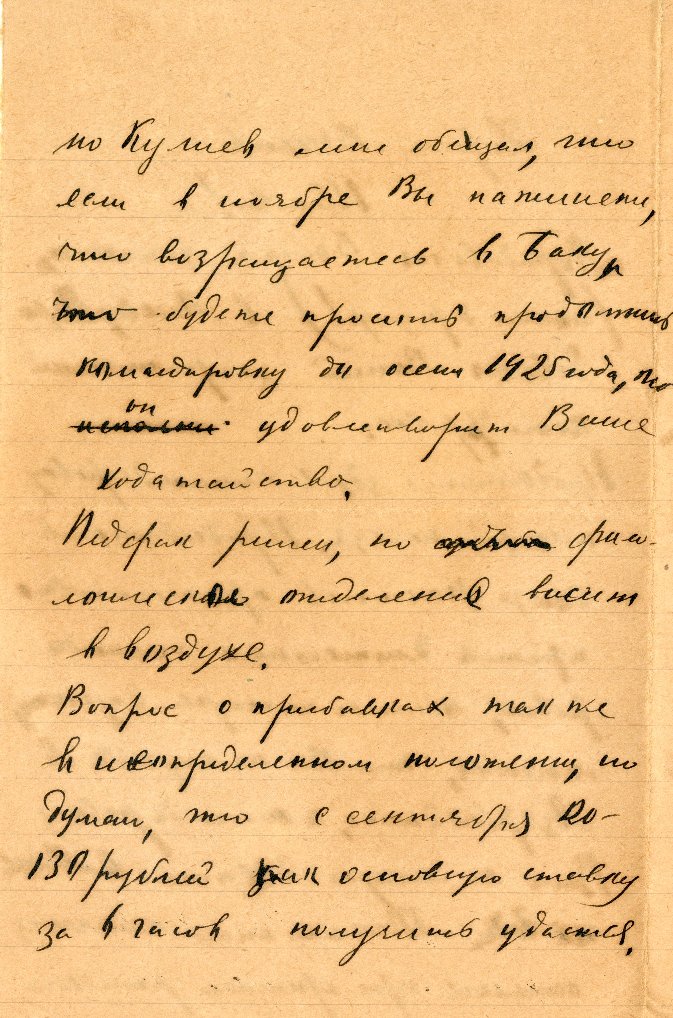 но Кулиев мне обещал, что
если в ноябре Вы напишете,
что возращаетесь в Баку,
что будете просить продолжить
командировку до осени 1925 года, то
он удовлетворит Ваше
ходатайство.
Педфак решен, но фило-
логическое отделение висит
в воздухе.
Вопрос о прибавках так же
в неопределенном положении, но
думаю, что с сентября по
130 рублей как основную ставку
за 6 часов получить удастся.